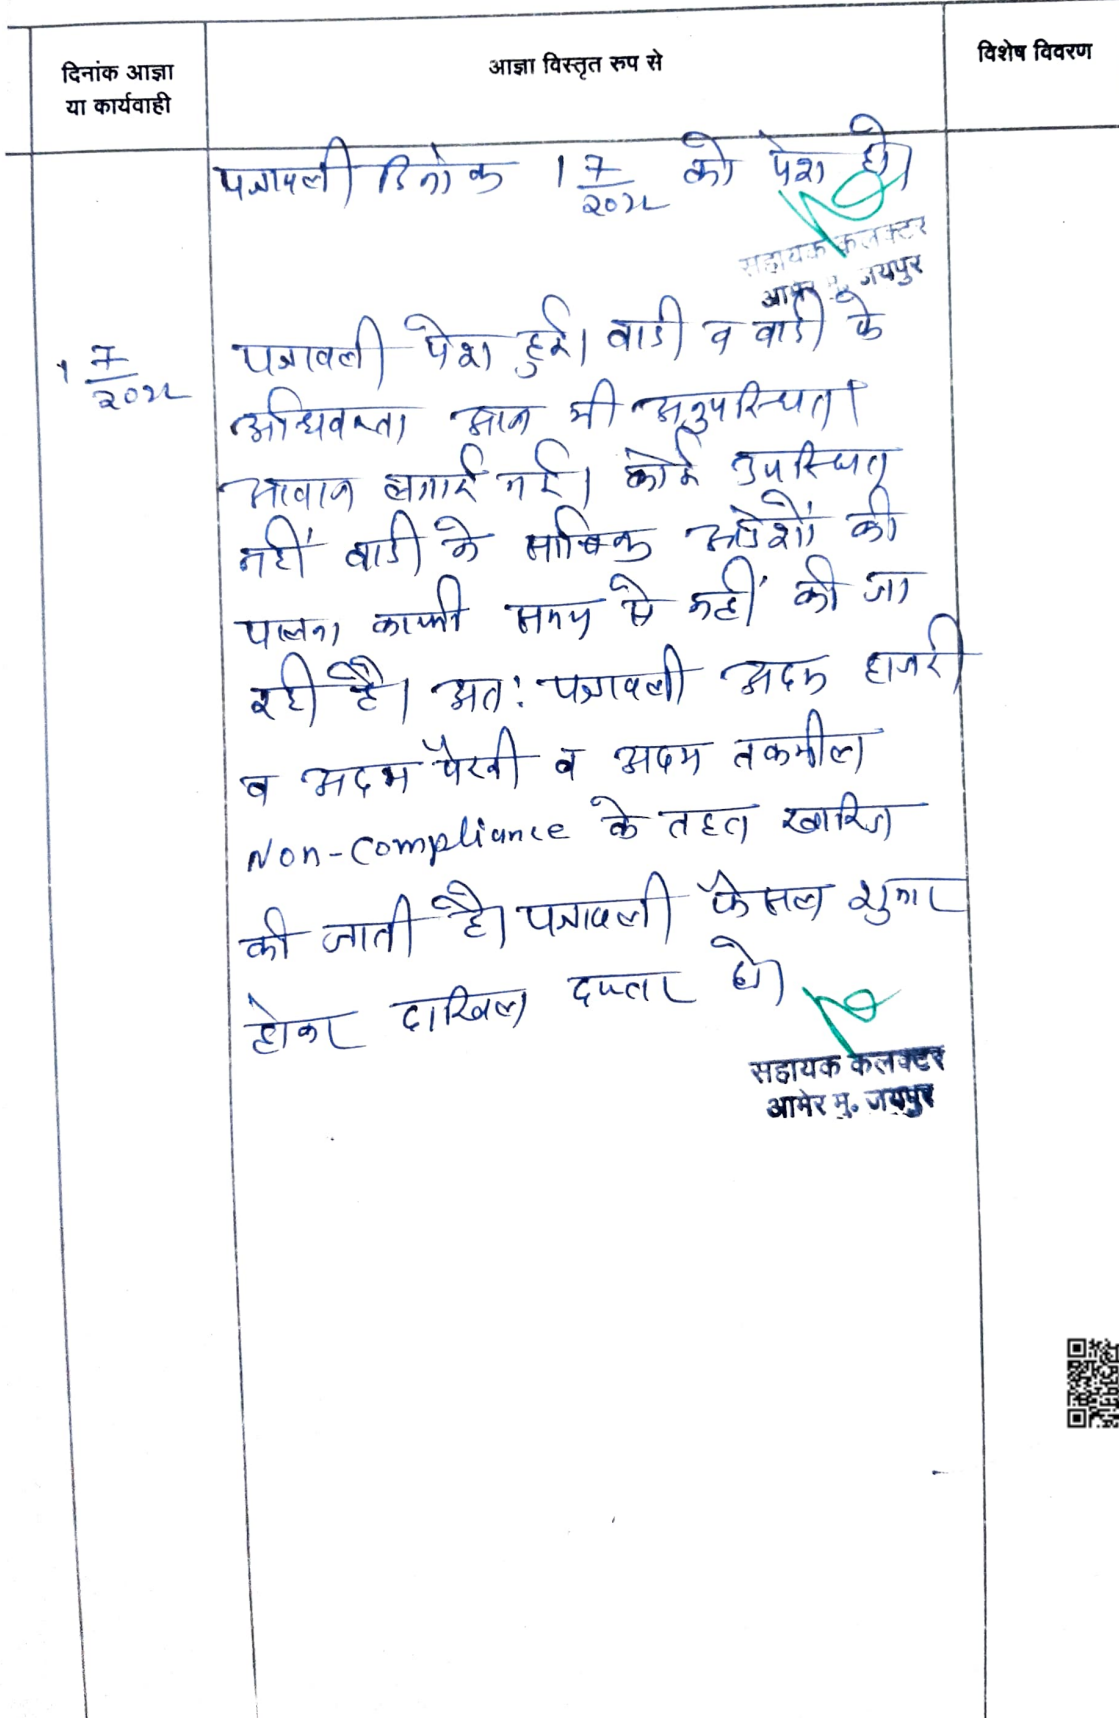 दिनांक आज्ञा
या कार्यवाही
आज्ञा विस्तृत रुप से
विशेष विवरण
पत्रावली दिनांक 1 7/2022 को पेश हो।
सहायक कलक्टर
आमेर मु. जयपुर
1 7/2022
पत्रावली पेश हुई। वादी व वादी के
अधिवक्ता आज भी अनुपस्थित।
आवाज लगाई गई। कोई उपस्थित
नहीं वादी के साबिक आदेशों की
पालना काफी समय से नहीं की जा
रही है। अतः पत्रावली अदम हाजरी
व अदम पैरवी व अदम तकमील
Non-Compliance के तहत खारिज
की जाती है। पत्रावली फैसल शुमार
होकर दाखिल दफ्तर हो।
सहायक कलक्टर
आमेर मु. जयपुर